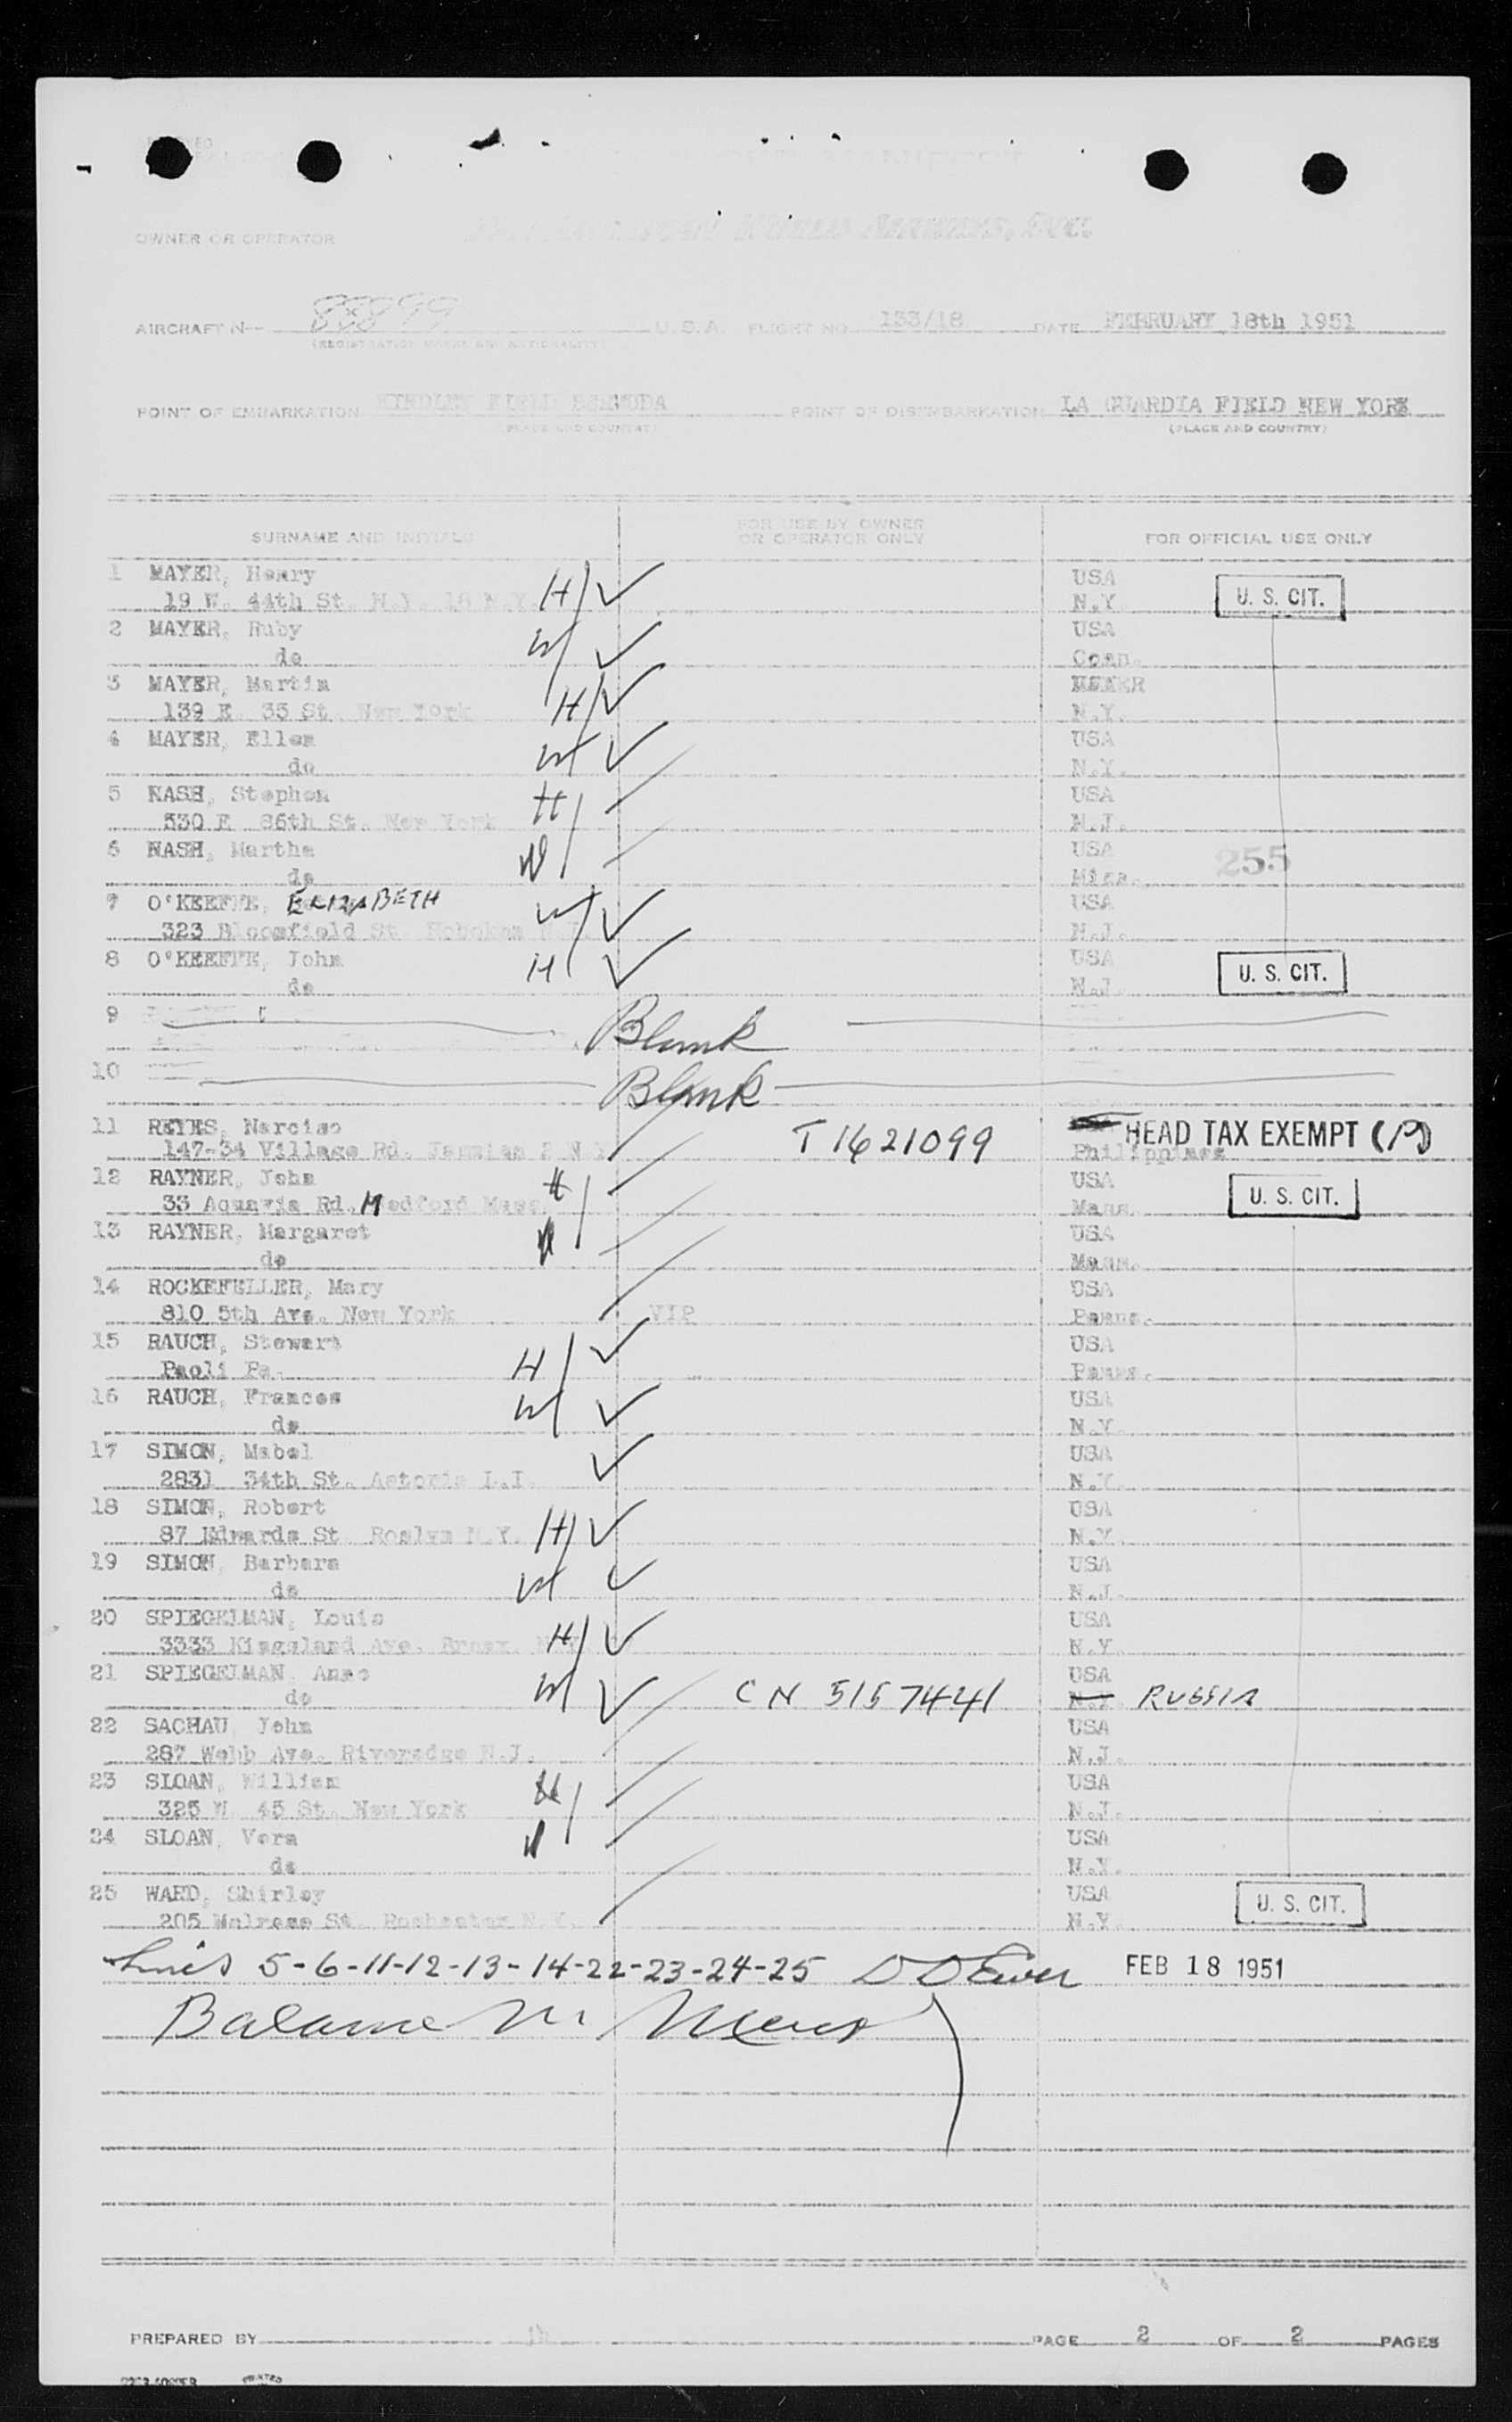 OWNER OR OPERATOR WORLD AIRWAYS, INC.
AIRCRAFT N- 88899 U.S.A. FLIGHT NO. 133/18 DATE FEBRUARY 18th 1951
(REGISTRATION MARKS AND NATIONALITY)
POINT OF EMBARKATION KINDLEY FIELD BERMUDA POINT OF DISEMBARKATION LA GUARDIA FIELD NEW YORK
(PLACE AND COUNTRY) (PLACE AND COUNTRY)
SURNAME AND INITIALS FOR USE BY OWNER OR OPERATOR ONLY FOR OFFICIAL USE ONLY
1 MAYER, Henry USA
19 W. 44th St. N.Y. 18 N.Y. H ✓ N.Y. U. S. CIT.
2 MAYER, Ruby USA
do W ✓ Conn.
3 MAYER, Martin
139 E. 35 St. New York H ✓ N.Y.
4 MAYER, Ellen USA
do W ✓ N.Y.
5 NASH, Stephen H USA
530 E 86th St. New York N.J.
6 NASH, Martha W USA 255
do Minn.
7 O'KEEFFE, ELIZABETH W ✓ USA
323 Bloomfield St. Hoboken N.J. N.J.
8 O'KEEFFE, John H ✓ USA
do N.J. U. S. CIT.
9 Blank
10 Blank
11 REYES, Narciso T1621099 HEAD TAX EXEMPT (P)
147-34 Village Rd. Jamaica 2 N.Y. Philippines
12 RAYNER, John H USA
33 Aquavia Rd. Medford Mass. Mass. U. S. CIT.
13 RAYNER, Margaret W USA
do Mass.
14 ROCKEFELLER, Mary USA
810 5th Ave. New York VIP Penns.
15 RAUCH, Stewart USA
Paoli Pa. H ✓ Penns.
16 RAUCH, Frances W ✓ USA
do N.Y.
17 SIMON, Mabel ✓ USA
2831 34th St. Astoria L.I. N.Y.
18 SIMON, Robert USA
87 Edwards St. Roslyn N.Y. H ✓ N.Y.
19 SIMON, Barbara USA
do W ✓ N.J.
20 SPIEGELMAN, Louis USA
3333 Kingsland Ave. Bronx. N.Y. H ✓ N.Y.
21 SPIEGELMAN, Anne USA
do W ✓ CN 5157441 RUSSIA
22 SACHAU, John USA
287 Webb Ave. Riveredge N.J. N.J.
23 SLOAN, William H USA
325 W. 45 St. New York N.J.
24 SLOAN, Vera W USA
do N.Y.
25 WARD, Shirley USA
205 Melrose St. Rochester N.Y. N.Y. U. S. CIT.
Lines 5-6-11-12-13-14-22-23-24-25 FEB 18 1951
Balance
PREPARED BY PAGE 2 OF 2 PAGES
PRINTED